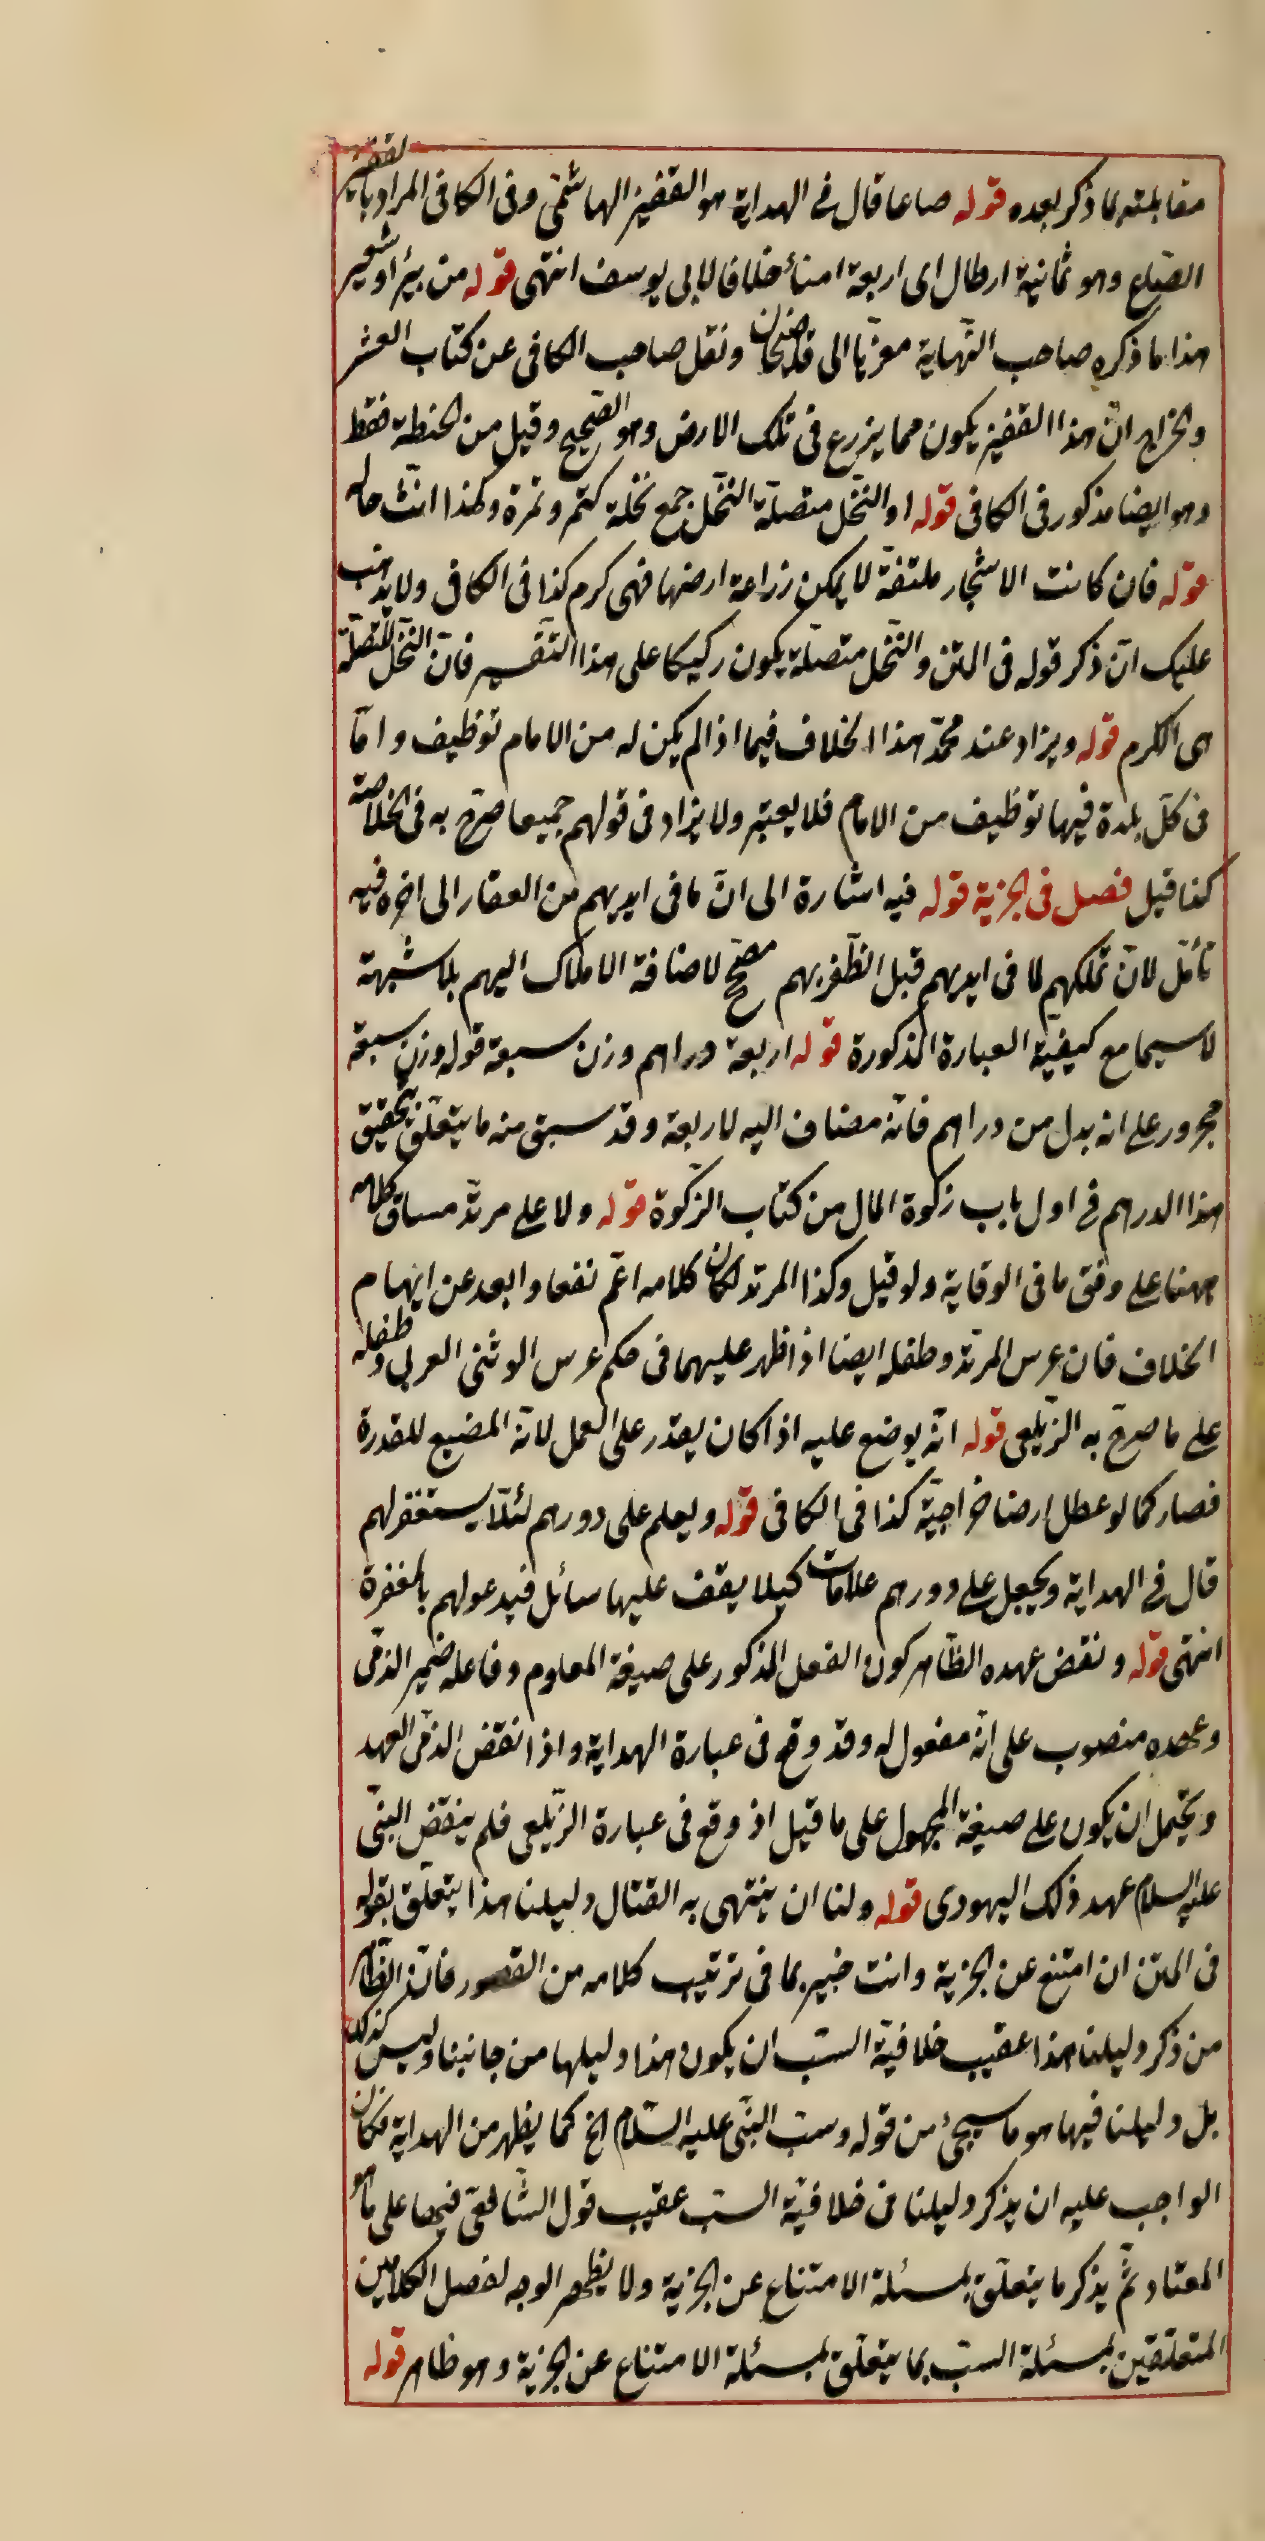 مقابلته لما ذكر بعده قوله صاعا قال فى الهداية هو القفيز الهاشمى وفى الكافى المراد بالقفيز
الصّاع وهو ثمانية ارطال اى اربعة امناء خلافا لابى يوسف انتهى قوله من برّ او شعير
هذا ما ذكره صاحب النّهاية معزيّا الى قاضيخان ونقل صاحب الكافى عن كتاب العشر
والخراج انّ هذا القفيز يكون مما يزرع فى تلك الارض وهو الصّحيح وقيل من الحنطة فقط
وهو ايضا مذكور فى الكافى قوله او النّخل متصلّة النّخل جمع نخلة كتمر وتمرة ولهذا انّث حاله
قوله فان كانت الاشجار ملتفّة لا يمكن زراعة ارضها فهى كرم كذا فى الكافى ولا يذهب
عليك انّ ذكر قوله فى المتن والنّخل متصلّة يكون ركيكا على هذا التّفسير فانّ النّخل المتّصلة
هى الكرم قوله ويزاد عند محمّد هذا الخلاف فيما اذا لم يكن له من الامام توظيف وامّا
فى كلّ بلدة فيها توظيف من الامام فلا يعتبر ولا يزاد فى قولهم جميعا صرّح به فى الخلاصة
كذا قيل فصل فى الجزية قوله فيه اشارة الى انّ ما فى ايديهم من العقار الى اخره فيه
تأمّل لانّ تملكهم لما فى ايديهم قبل الظّفر بهم مصحّح لاضافة الاملاك اليهم بلا شبهة
لا سيما مع كيفيّة العبارة المذكورة قوله اربعة دراهم وزن سبعة قوله وزن سبعة
مجرور على انه بدل من دراهم فانّه مضاف اليه لاربعة وقد سبق منه ما يتعلّق بتحقيق
هذا الدرهم فى اول باب زكوة المال من كتاب الزّكوة قوله ولا على مرتدّ مساق كلامه
ههنا على وفق ما فى الوقاية ولو قيل وكذا المرتد لكان كلامه اعمّ نفعا وابعد عن ايهام
الخلاف فان عرس المرتدّ وطفله ايضا اذا ظهر عليهما فى حكم عرس الوثنى العربى وطفله
على ما صرّح به الزّيلعى قوله انّه يوضع عليه اذا كان يقدر على العمل لانّه المضيع للقدرة
فصار كما لو عطل ارضا خراجيّة كذا فى الكافى قوله ويعلم على دورهم لئلّا يستغفر لهم
قال فى الهداية ويجعل على دورهم علامات كيلا يقف عليها سائل فيدعو لهم بالمغفرة
انتهى قوله ونقض عهده الظّاهر كون الفعل المذكور على صيغة المعلوم وفاعله ضمير الذمّى
وعهده منصوب على انّه مفعول له وقد وقع فى عبارة الهداية واذا نقض الذمّى العهد
ويحتمل ان يكون على صيغة المجهول على ما قيل اذ وقع فى عبارة الزّيلعى فلم ينقض النبّى
عليه السلام عهد ذلك اليهودى قوله ولنا ان ينتهى به القتال دليلنا هذا يتعلّق بقوله
فى المتن ان امتنع عن الجزية وانت خبير بما فى ترتيب كلامه من القصور فانّ الظّاهر
من ذكر دليلنا هذا عقيب خلافيّة السّب ان يكون هذا دليلها من جانبنا وليس كذلك
بل دليلنا فيها هو ما سيجئ من قوله وسبّ النبّى عليه السّلام الخ كما يظهر من الهداية فكان
الواجب عليه ان يذكر دليلنا فى خلافيّة السّب عقيب قول الشّافعى فيها على ما هو
المعتاد ثمّ يذكر ما يتعلّق بمسئلة الامتناع عن الجزية ولا يظهر الوجه لفصل الكلامين
المتعلّقين بمسئلة السّب بما يتعلّق بمسئلة الامتناع عن الجزية وهو ظاهر قوله